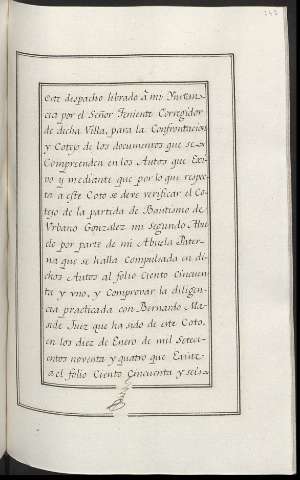 Este despacho librado à mi Ynstan-
cia por el Señor Teniente Corregidor
de dicha Villa, para la Confrontacion
y Cotejo de los documentos que se
Comprenden en los Autos que Exi-
vo y mediante que por lo que respec-
ta a este Coto se deve verificar el Co-
tejo de la partida de Bautismo de
Vrbano Gonzalez mi segundo Abu-
elo por parte de mi Abuela Pater-
na que se halla Compulsada en di-
chos Autos al folio Ciento Cincuen
ta y vno, y Comprovar la diligen-
cia practicada con Bernardo Ma-
side Juez que ha sido de este Coto,
en los diez de Enero de mil Seteci-
entos noventa y quatro que
a el folio Ciento Cincuenta y seis